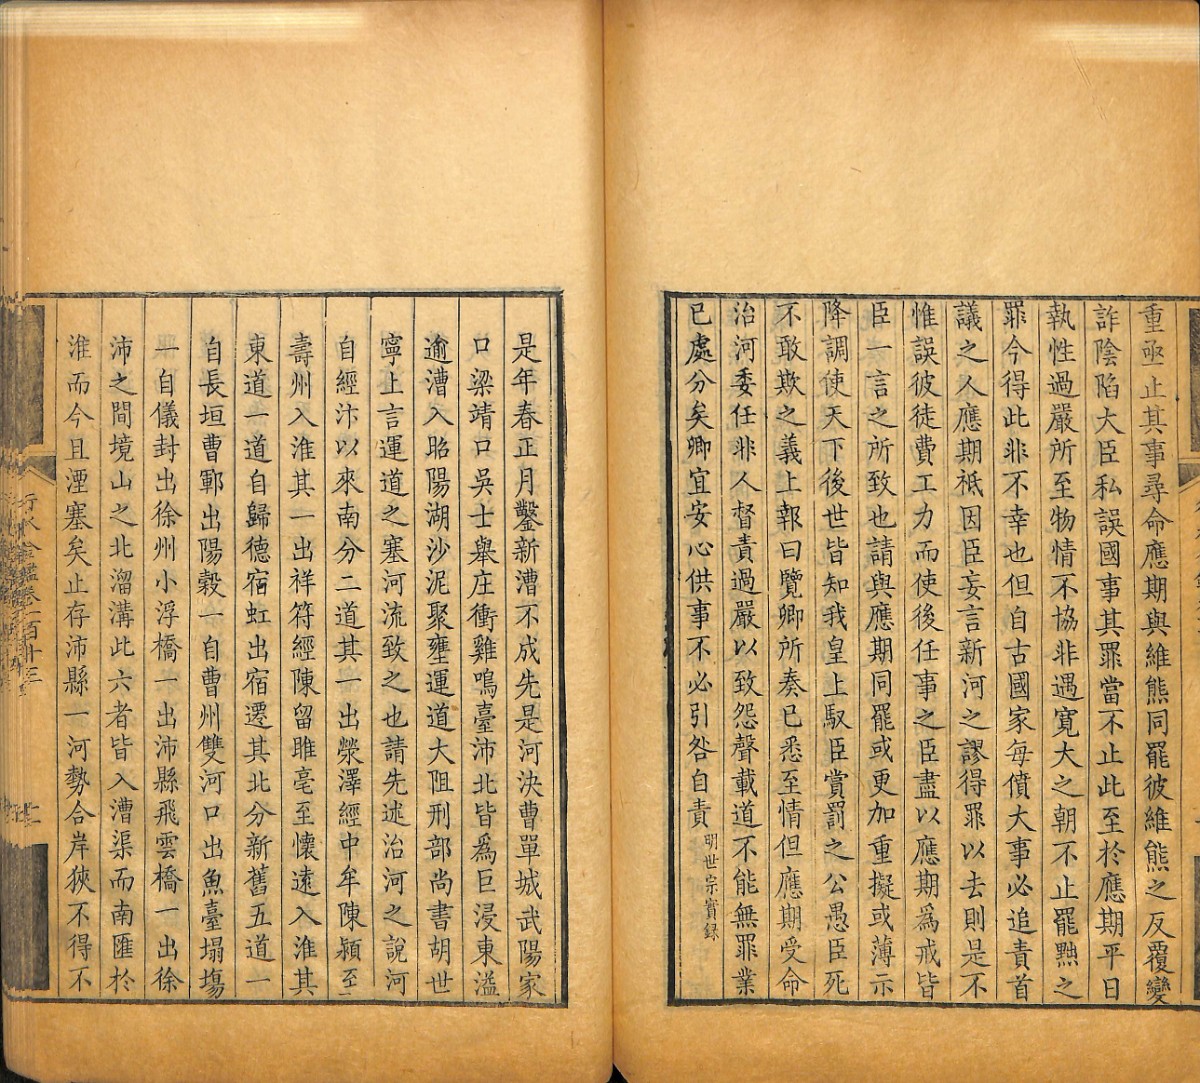 重亟止其事尋命應期與維熊同罷彼維熊之反覆變
詐陰陷大臣私誤國事其罪當不止此至於應期平日
執性過嚴所至物情不協非遇寬大之朝不止罷黜之
罪今得此非不幸也但自古國家每僨大事必追責首
議之人應期祗因臣妄言新河之謬得罪以去則是不
惟誤彼徒費工力而使後任事之臣盡以應期爲戒皆
臣一言之所致也請與應期同罷或更加重擬或薄示
降調使天下後世皆知我皇上馭臣賞罰之公愚臣死
不敢欺之義上報曰覽卿所奏已悉至情但應期受命
治河委任非人督責過嚴以致怨聲載道不能無罪業
已處分矣卿宜安心供事不必引咎自責明世宗實録
是年春正月鑿新漕不成先是河決曹單城武陽家
口梁靖口吳士舉庄衝雞鳴臺沛北皆爲巨浸東溢
逾漕入昭陽湖沙泥聚壅運道大阻刑部尚書胡世
寧上言運道之塞河流致之也請先述治河之說河
自經汴以來南分二道其一出滎澤經中牟陳潁至
壽州入淮其一出祥符經陳留睢亳至懷遠入淮其
東道一道自歸德宿虹出宿遷其北分新舊五道一
自長垣曹鄆出陽穀一自曹州雙河口出魚臺塌塲
一自儀封出徐州小浮橋一出沛縣飛雲橋一出徐
沛之間境山之北溜溝此六者皆入漕渠而南匯於
淮而今且湮塞矣止存沛縣一河勢合岸狹不得不
行水金鑑卷一百十三